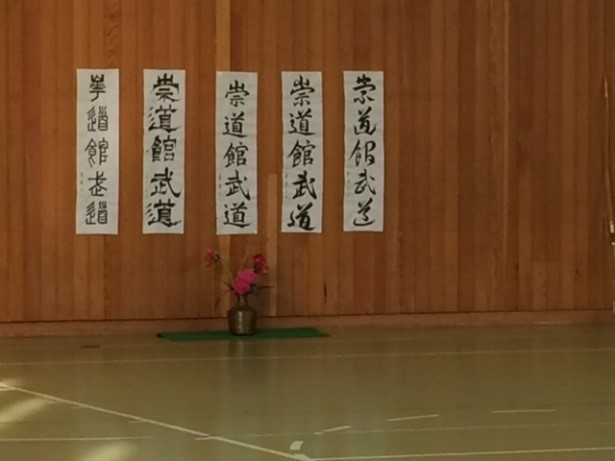 崇道館武道
崇道館武道
崇道館武道
崇道館武道
崇道館武道